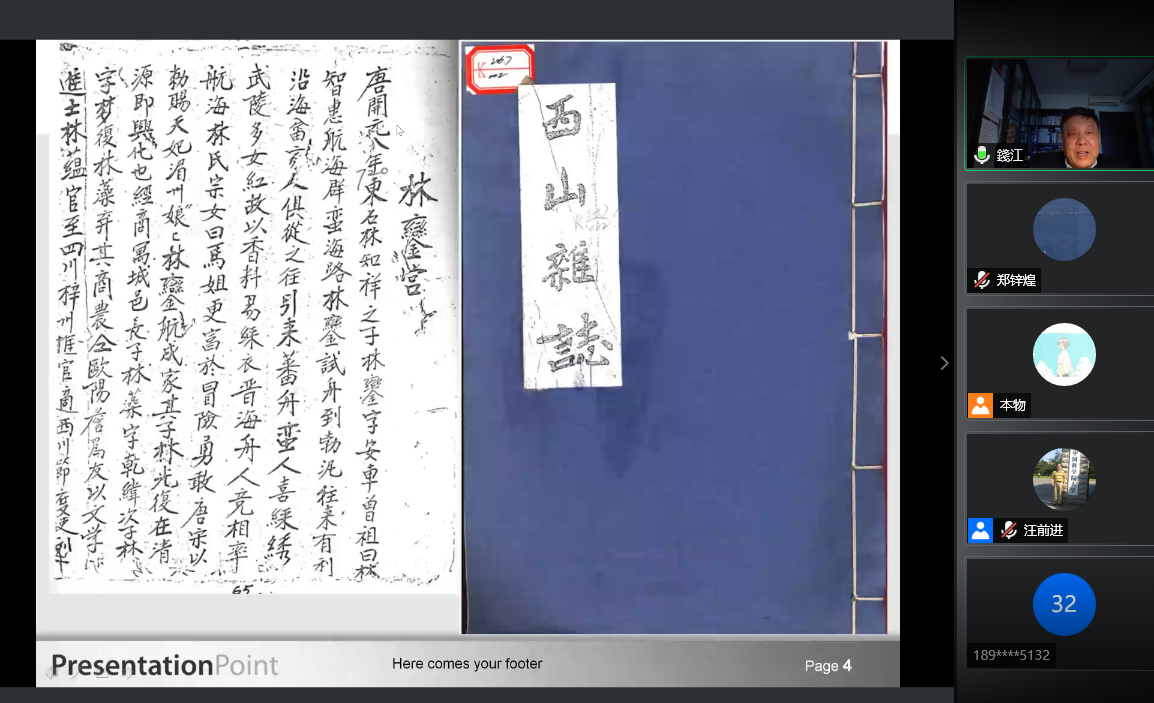 林鑾官
唐開元八年東石林知祥之子林鑾字安車曾祖曰林
智惠航海群蛮海路林鑾試舟到勃泥往来有利
沿海畲家人俱從之往引来蕃舟蛮人喜綵綉
武陵多女紅故以香料易綵衣晋海舟人竞相率
航海林氏宗女曰馬姐更富於冒險勇敢唐宗以
勅賜天妃湄州娘娘林鑾航成家其子林光復在清
源即興化也經商寓城邑長子林藻字乾緯次子林
字梦復林藻弃其商農仝歐陽詹爲友以文学
進士林蕴官至四川梓州推官商西川節度吏刘
65
西山雜誌
PresentationPoint
Here comes your footer
Page 4
錢江
郑锌煌
本物
汪前进
32
189****5132